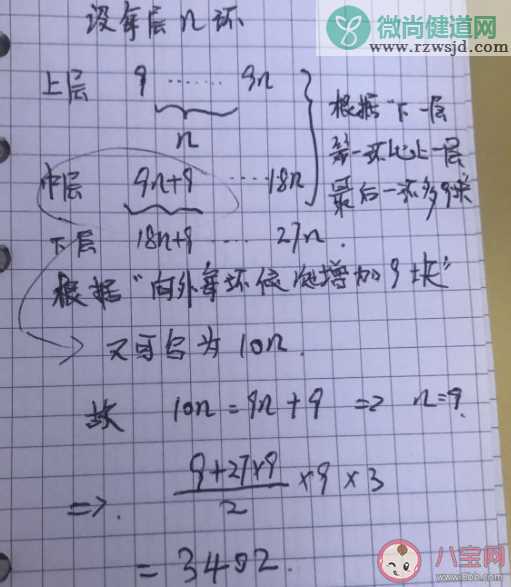 微尚健道网
www.rzwsjd.com
设每层n环
上层 9 …… 9n
n
根据"下一层
第一环比上一层
最后一环多9块
中层 9n+9 … 18n
下层 18n+9 … 27n.
根据"向外每环依次增加9块"
又可写为 10n.
故 10n = 9n + 9 => n=9.
=>. 9+27×9 / 2 ×9 ×3
= 3402.
八宝网
www.8bao.com